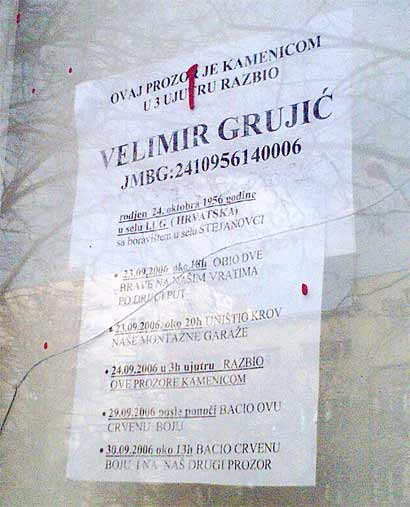 OVAJ PROZOR JE KAMENICOM
U 3 UJUTRU RAZBIO
VELIMIR GRUJIĆ
JMBG:2410956140006
rodjen 24. oktobra 1956 godine
u selu LUG ( HRVATSKA)
sa boravištem u selu STEJANOVCI
• 23.09.2006 oko 18h OBIO DVE
BRAVE NA NAŠIM VRATIMA
PO DRUGI PUT
• 23.09.2006, oko 20h UNIŠTIO KROV
NAŠE MONTAŽNE GARAŽE
• 24.09.2006 u 3h ujutru RAZBIO
OVE PROZORE KAMENICOM
• 29.09.2006 posle ponoći BACIO OVU
CRVENU BOJU
• 30.09.2006 oko 13h BACIO CRVENU
BOJU I NA NAŠ DRUGI PROZOR